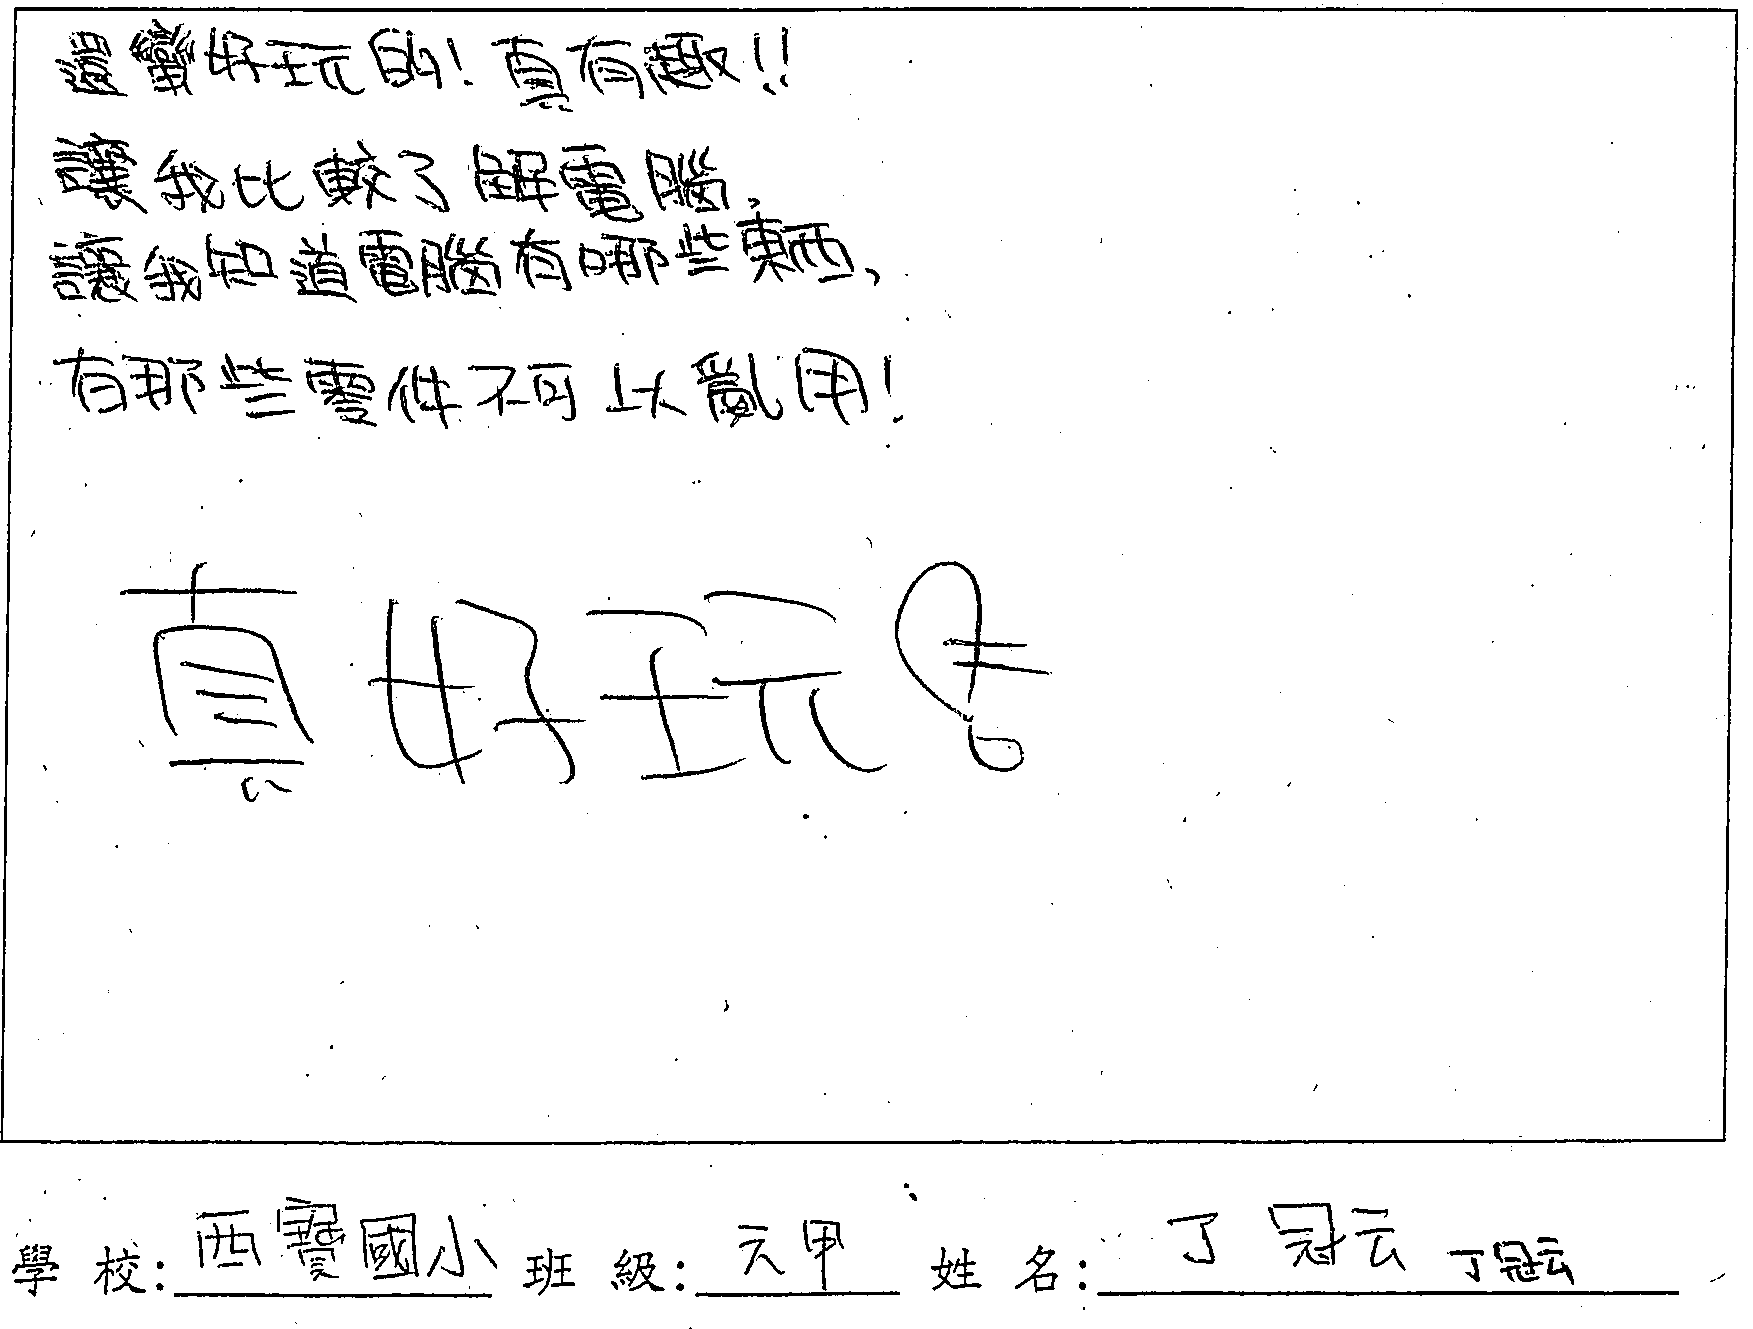 還蠻好玩的!真有趣!!
讓我比較了解電腦,
讓我知道電腦有哪些東西,
有那些零件不可以亂用!
真好玩
學校:西寶國小 班級:六甲 姓名:丁冠云 丁冠云